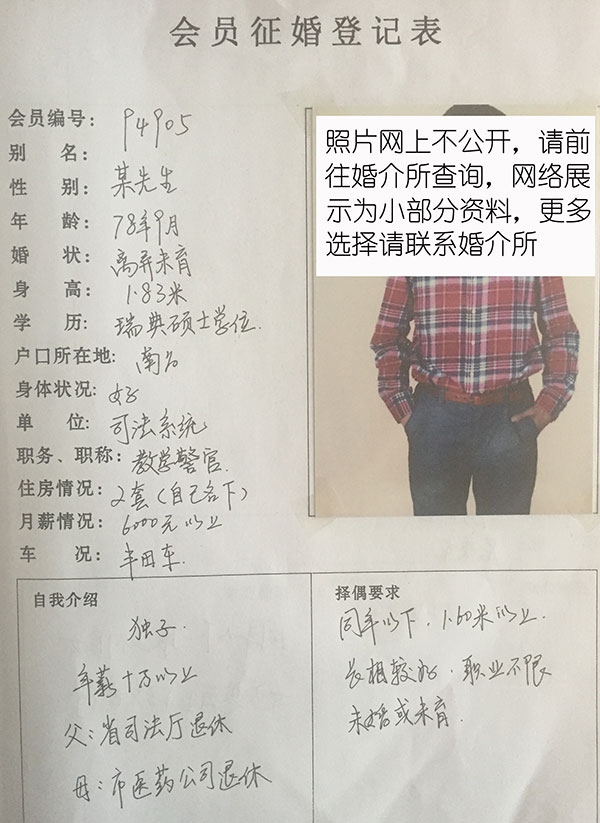 会员征婚登记表
会员编号: 94905
别 名:
性 别: 某先生
年 龄: 78年9月
婚 状: 离异未育
身 高: 1.83米
学 历: 瑞典硕士学位.
户口所在地: 南昌
身体状况: 好
单 位: 司法系统
职务、职称: 教学警官.
住房情况: 2套(自己名下)
月薪情况: 6000元以上
车 况: 丰田车.
照片网上不公开,请前
往婚介所查询,网络展
示为小部分资料,更多
选择请联系婚介所
自我介绍
独子.
年薪十万以上
父:省司法厅退休
母:市医药公司退休
择偶要求
同年以下.1.60米以上.
长相较好.职业不限
未婚或未育.